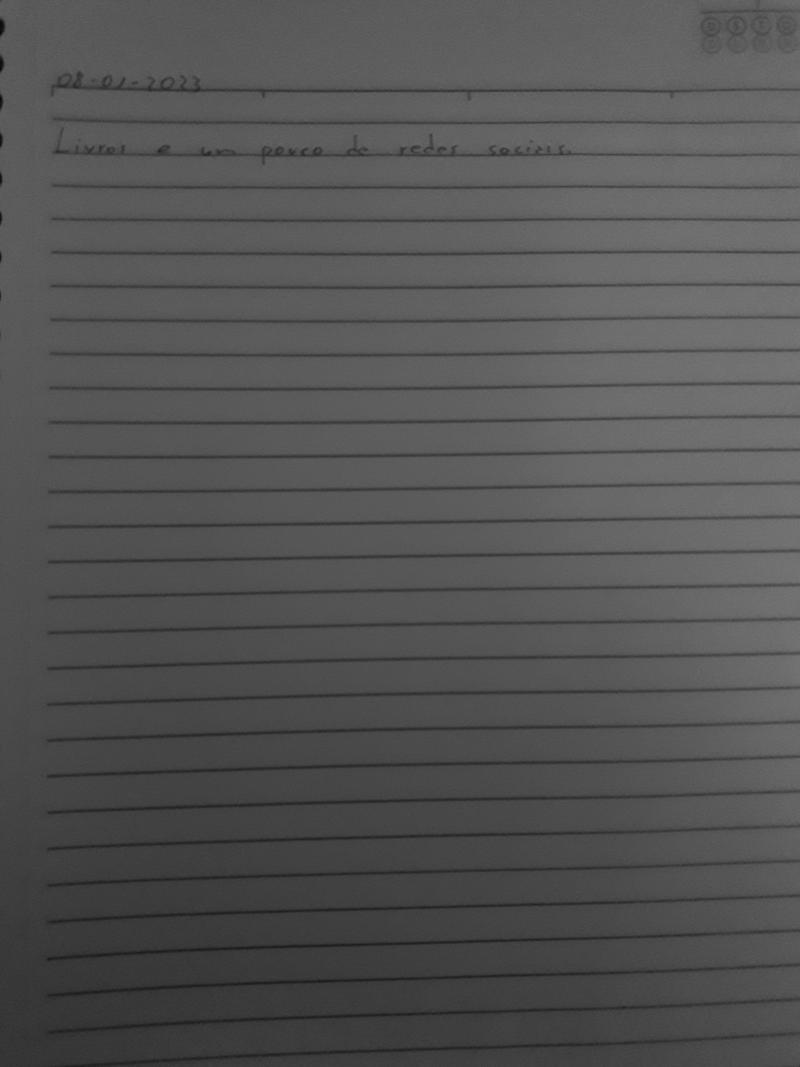 08-01-2023
Livros e um pouco de redes sociais.